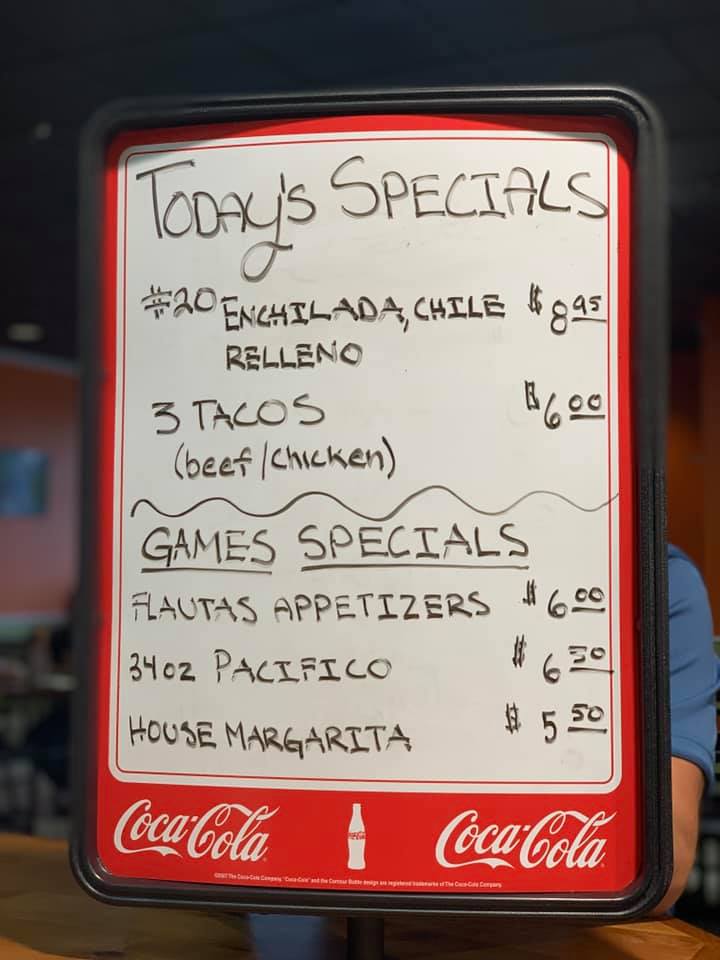 TODAY'S SPECIALS
#20 ENCHILADA, CHILE $8.95
RELLENO
3 TACOS $6.00
(beef/chicken)
GAMES SPECIALS
FLAUTAS APPETIZERS $6.00
34oz PACIFICO $6.50
HOUSE MARGARITA $5.50
Coca-Cola Coca-Cola
©2007 The Coca-Cola Company. "Coca-Cola" and the Contour Bottle design are registered trademarks of The Coca-Cola Company.